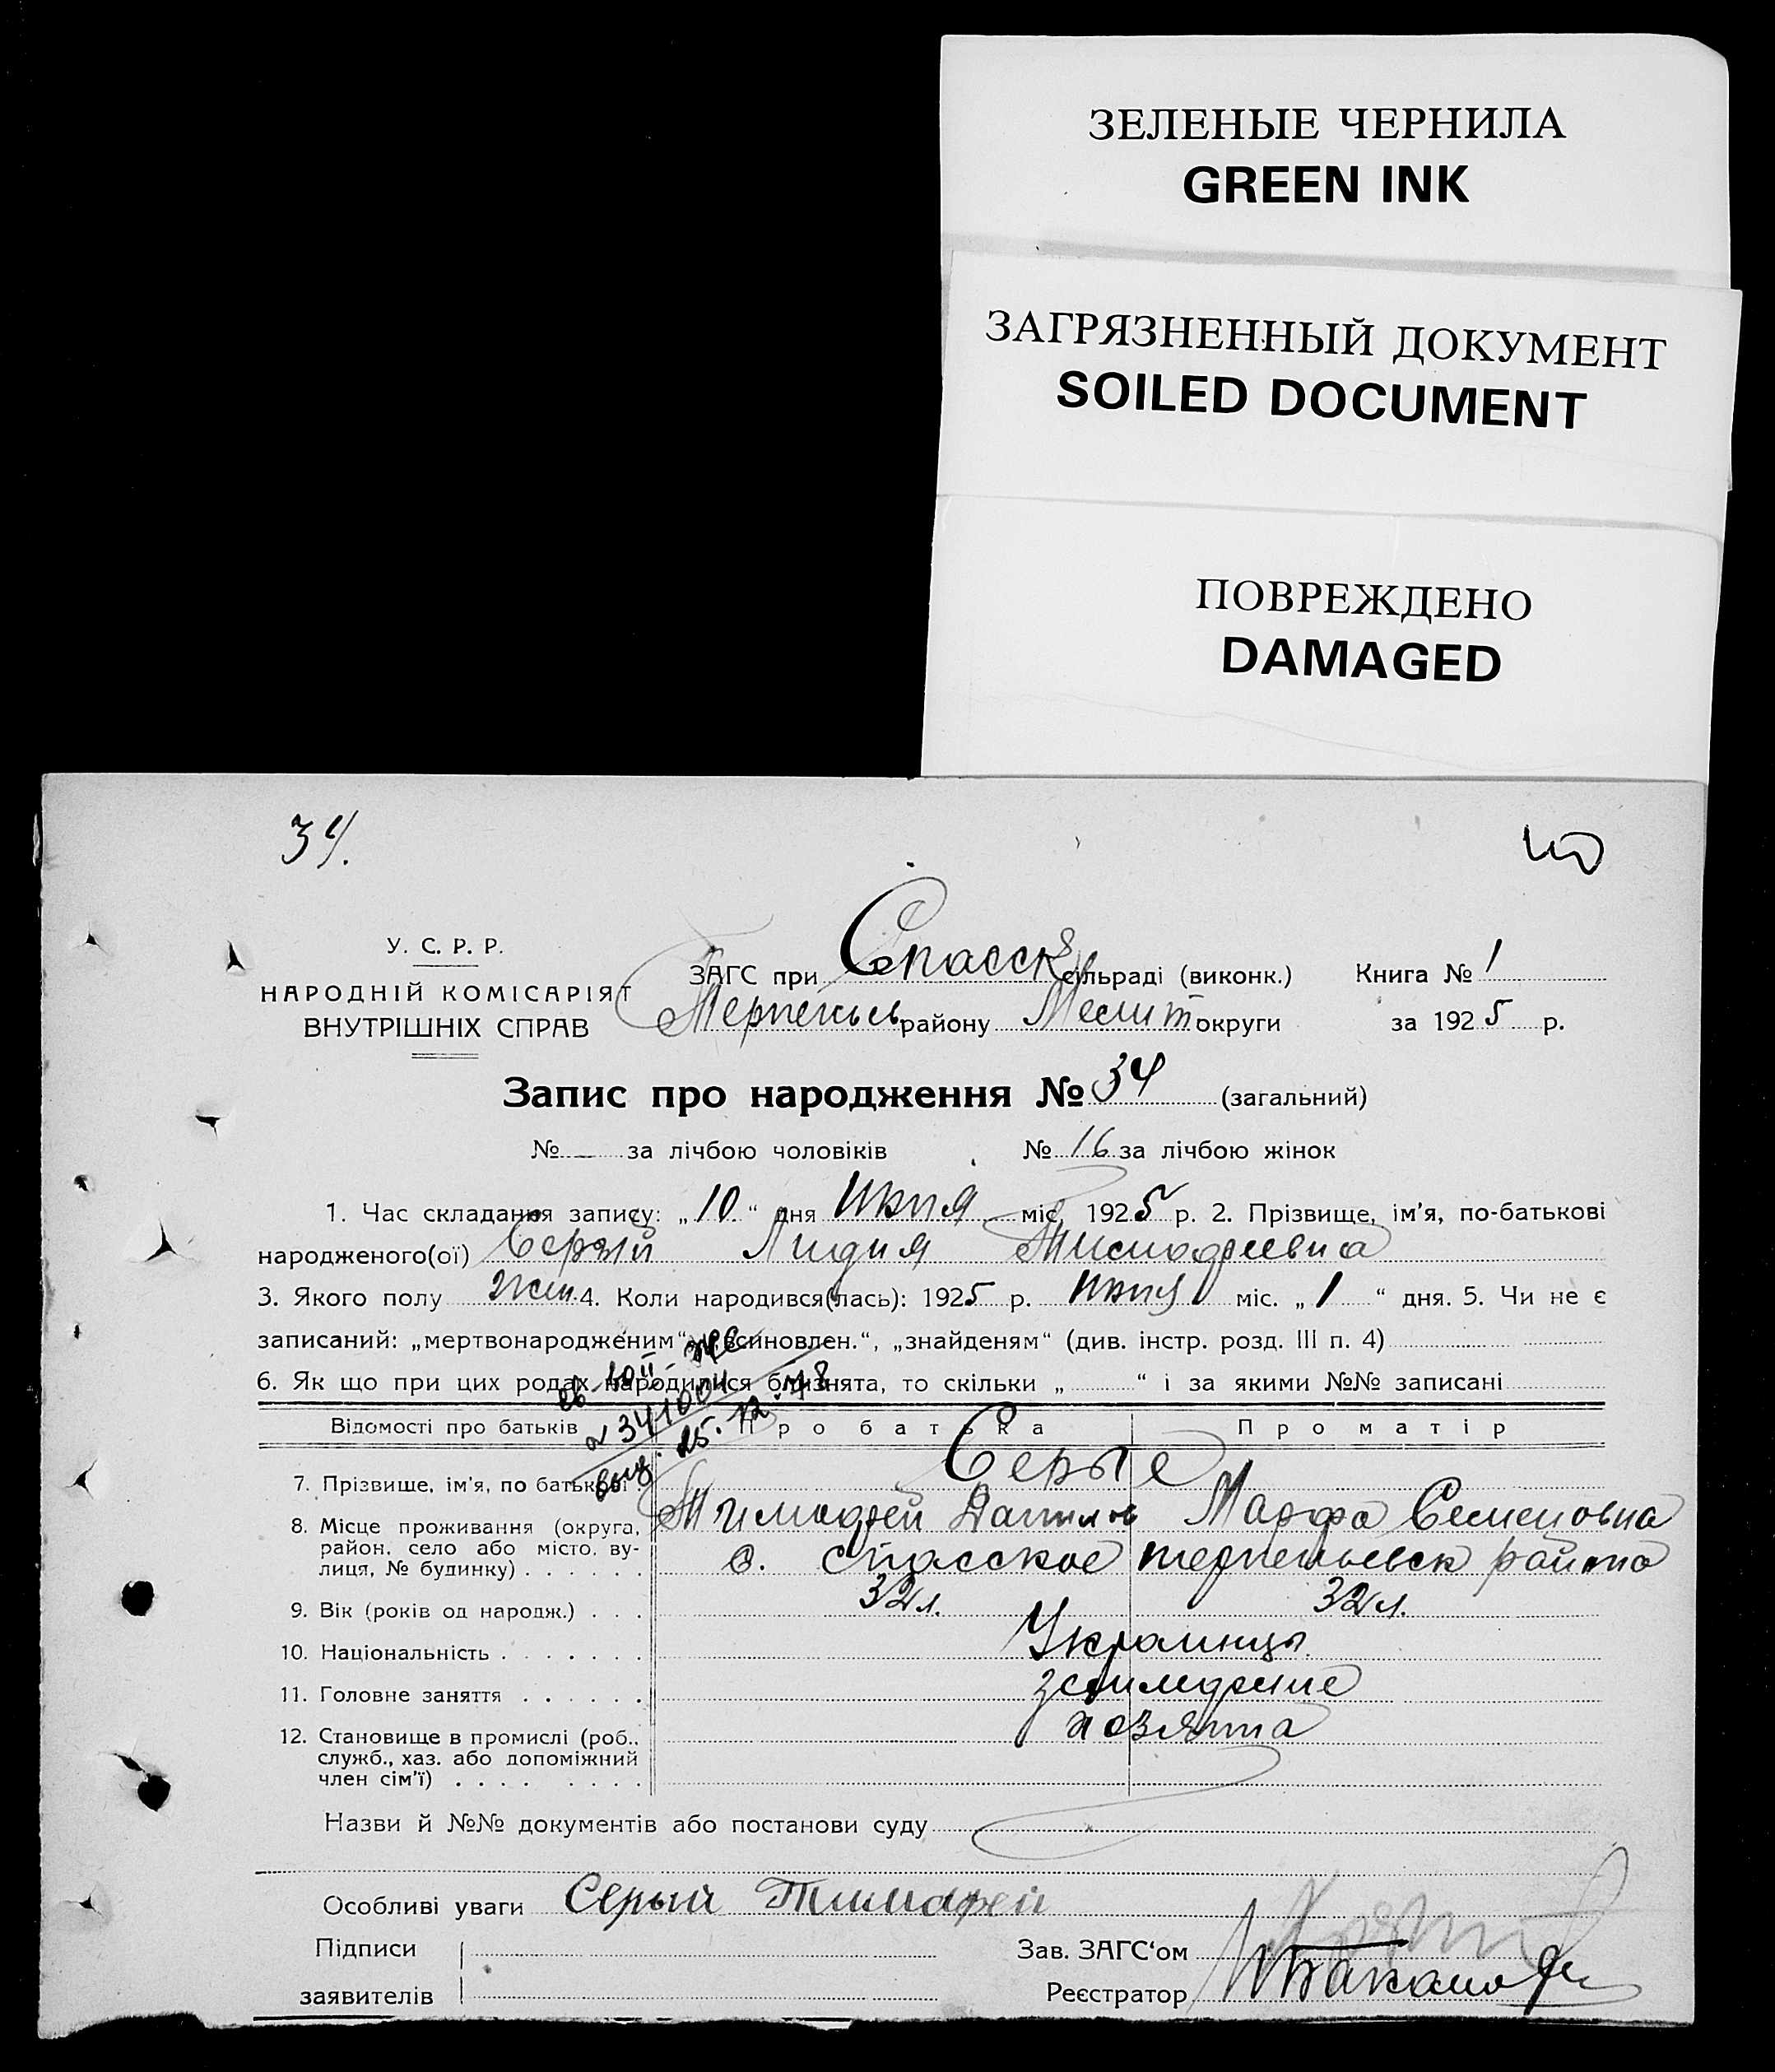 ЗЕЛЕНЫЕ ЧЕРНИЛА
GREEN INK
ЗАГРЯЗНЕННЫЙ ДОКУМЕНТ
SOILED DOCUMENT
ПОВРЕЖДЕНО
DAMAGED
34.
У. С. Р. Р.
НАРОДНІЙ КОМІСАРІЯТ
ВНУТРІШНІХ СПРАВ
ЗАГС при Спасск сільраді (виконк.) Книга № 1
району Мелит округи за 1925 р.
Запис про народження № 34 (загальний)
№ — за лічбою чоловіків № 16 за лічбою жінок
1. Час складання запису: „10“ дня Июня міс. 1925 р. 2. Прізвище, ім’я, по-батькові
народженого(ої) Серый Лидия Тимофеевна
3. Якого полу жен. 4. Коли народився(лась): 1925 р. Июня міс. „1“ дня. 5. Чи не є
записаний: „мертвонародженим“, „всиновлен.“, „знайденям“ (див. інстр. розд. III п. 4)
6. Як що при цих родах народилися близнята, то скільки „ “ і за якими №№ записані
341004
25.12.
Відомості про батьків Про батька Про матір
7. Прізвище, ім’я, по батькові Серые
Тимофей Данилов Марфа Семеновна
8. Місце проживання (округа, район, село або місто, вулиця, № будинку) с. Спасское район
9. Вік (років од народж.) 32 л. 32 л.
10. Національність Украинцы
11. Головне заняття земледелие
12. Становище в промислі (роб., служб., хаз. або допоміжний член сім’ї) хозяина
Назви й №№ документів або постанови суду
Особливі уваги Серый Тимофей
Підписи
заявителів
Зав. ЗАГС‘ом
Реєстратор